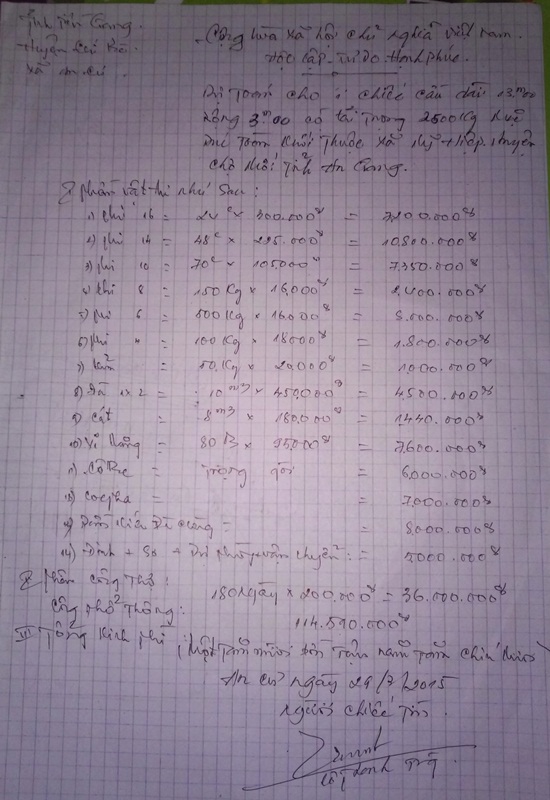 Tỉnh Tiền Giang.
Huyện Cái Bè
Xã An Cư.
Cộng hòa xã hội chủ nghĩa Việt Nam.
Độc Lập - Tự Do Hạnh Phúc.
Dự Toán cho 1 chiếc cầu dài 13m00
rộng 3m00 có tải trọng 2500Kg
xã Mỹ Hiệp. Huyện
Chợ Mới Tỉnh An Giang.
I phần vật tư như sau:
1) phi 16 = 24c × 300.000đ = 7.200.000đ
2) phi 14 = 48c × 225.000đ = 10.800.000đ
3) phi 10 = 70c × 105.000đ = 7.350.000đ
4) phi 8 = 150 Kg × 16,000đ = 2,400.000đ
5) phi 6 = 500 Kg × 16000đ = 8.000.000đ
6) phi = 100 Kg × 18000đ = 1.800.000đ
7) = 50.Kg × 20,000đ = 1000.000đ
8) Đá 1x2 = 10 m3 × 450,000đ = 4,500.000đ
9) cát : 8 m3 × 180,000đ = 1,440.000đ
10) Xi Măng = 80 B × 95,000đ = 7,600.000đ
11) = Trọng gói = 6,000.000đ
12) cocpha = = 7,000.000đ
= = 8,000.000đ
14) Đinh + + vận chuyển: = 5000.000đ
II phần công thợ:
công thợ thông: 180 Ngày × 200.000đ = 36.000.000đ
114.590.000đ
III Tổng Kinh phí (Một trăm mười bốn năm trăm chín mươi
An cư ngày 29/7/2015
Người chiết tín.